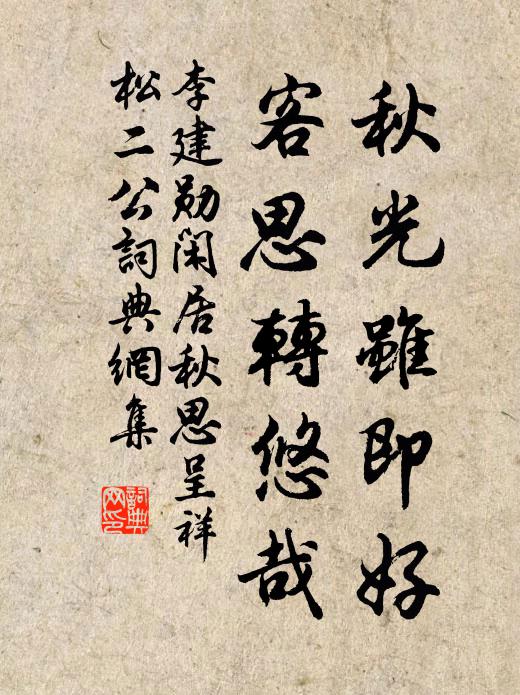 秋光雖即好
客思轉悠哉
李建勋閑居秋思呈祥
松二公詞典網集
詞典
网印